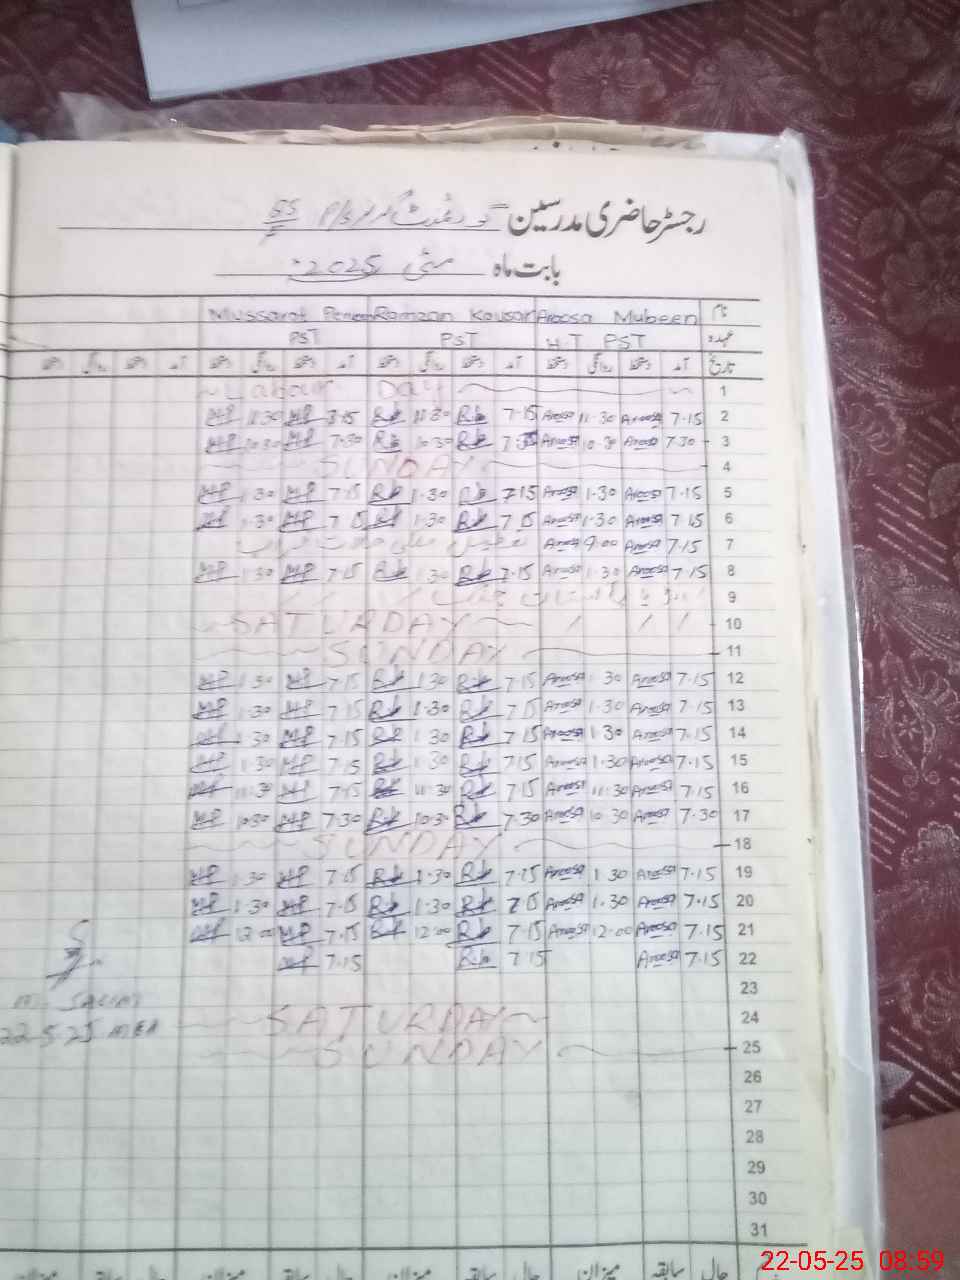 رجسٹر حاضری مدرسین گورنمنٹ گرلز P/S
بابت ماہ مئی 2025ء
Mussarat Ramzan Kousar Aroosa Mubeen نام
PST PST H.T PST عہدہ
دستخط روانگی دستخط آمد دستخط روانگی دستخط آمد دستخط روانگی دستخط آمد دستخط روانگی دستخط آمد تاریخ
Labour Day 1
MP 11.30 MP 7.15 Rk 11.30 Rk 7.15 Aroosa 11.30 Aroosa 7.15 2
MP 10.30 MP 7.30 Rk 10.30 Rk Aroosa 10.30 Aroosa 7.30 3
SUNDAY 4
MP 1.30 MP 7.15 Rk 1.30 Rk 7.15 Aroosa 1.30 Aroosa 7.15 5
MP 1.30 MP 7.15 Rk 1.30 Rk 7.15 Aroosa 1.30 Aroosa 7.15 6
Aroosa 9.00 Aroosa 7.15 7
MP 1.30 MP 7.15 Rk 1.30 Rk 7.15 Aroosa 1.30 Aroosa 7.15 8
9
SATURDAY 10
SUNDAY 11
MP 1.30 MP 7.15 Rk 1.30 Rk 7.15 Aroosa 1.30 Aroosa 7.15 12
MP 1.30 MP 7.15 Rk 1.30 Rk 7.15 Aroosa 1.30 Aroosa 7.15 13
MP 1.30 MP 7.15 Rk 1.30 Rk 7.15 Aroosa 1.30 Aroosa 7.15 14
MP 1.30 MP 7.15 Rk 1.30 Rk 7.15 Aroosa 1.30 Aroosa 7.15 15
MP 11.30 MP 7.15 Rk 11.30 Rk 7.15 Aroosa 11.30 Aroosa 7.15 16
MP 10.30 MP 7.30 Rk 10.30 Rk 7.30 Aroosa 10.30 Aroosa 7.30 17
SUNDAY 18
MP 1.30 MP 7.15 Rk 1.30 Rk 7.15 Aroosa 1.30 Aroosa 7.15 19
MP 1.30 MP 7.15 Rk 1.30 Rk 7.15 Aroosa 1.30 Aroosa 7.15 20
MP 12.00 MP 7.15 Rk 12.00 Rk 7.15 Aroosa 12.00 Aroosa 7.15 21
MP 7.15 Rk 7.15 Aroosa 7.15 22
23
SATURDAY 24
22-5-25 MEA
SUNDAY 25
26
27
28
29
30
31
میزان سابقہ حال میزان سابقہ حال میزان سابقہ حال
22-05-25 08:59